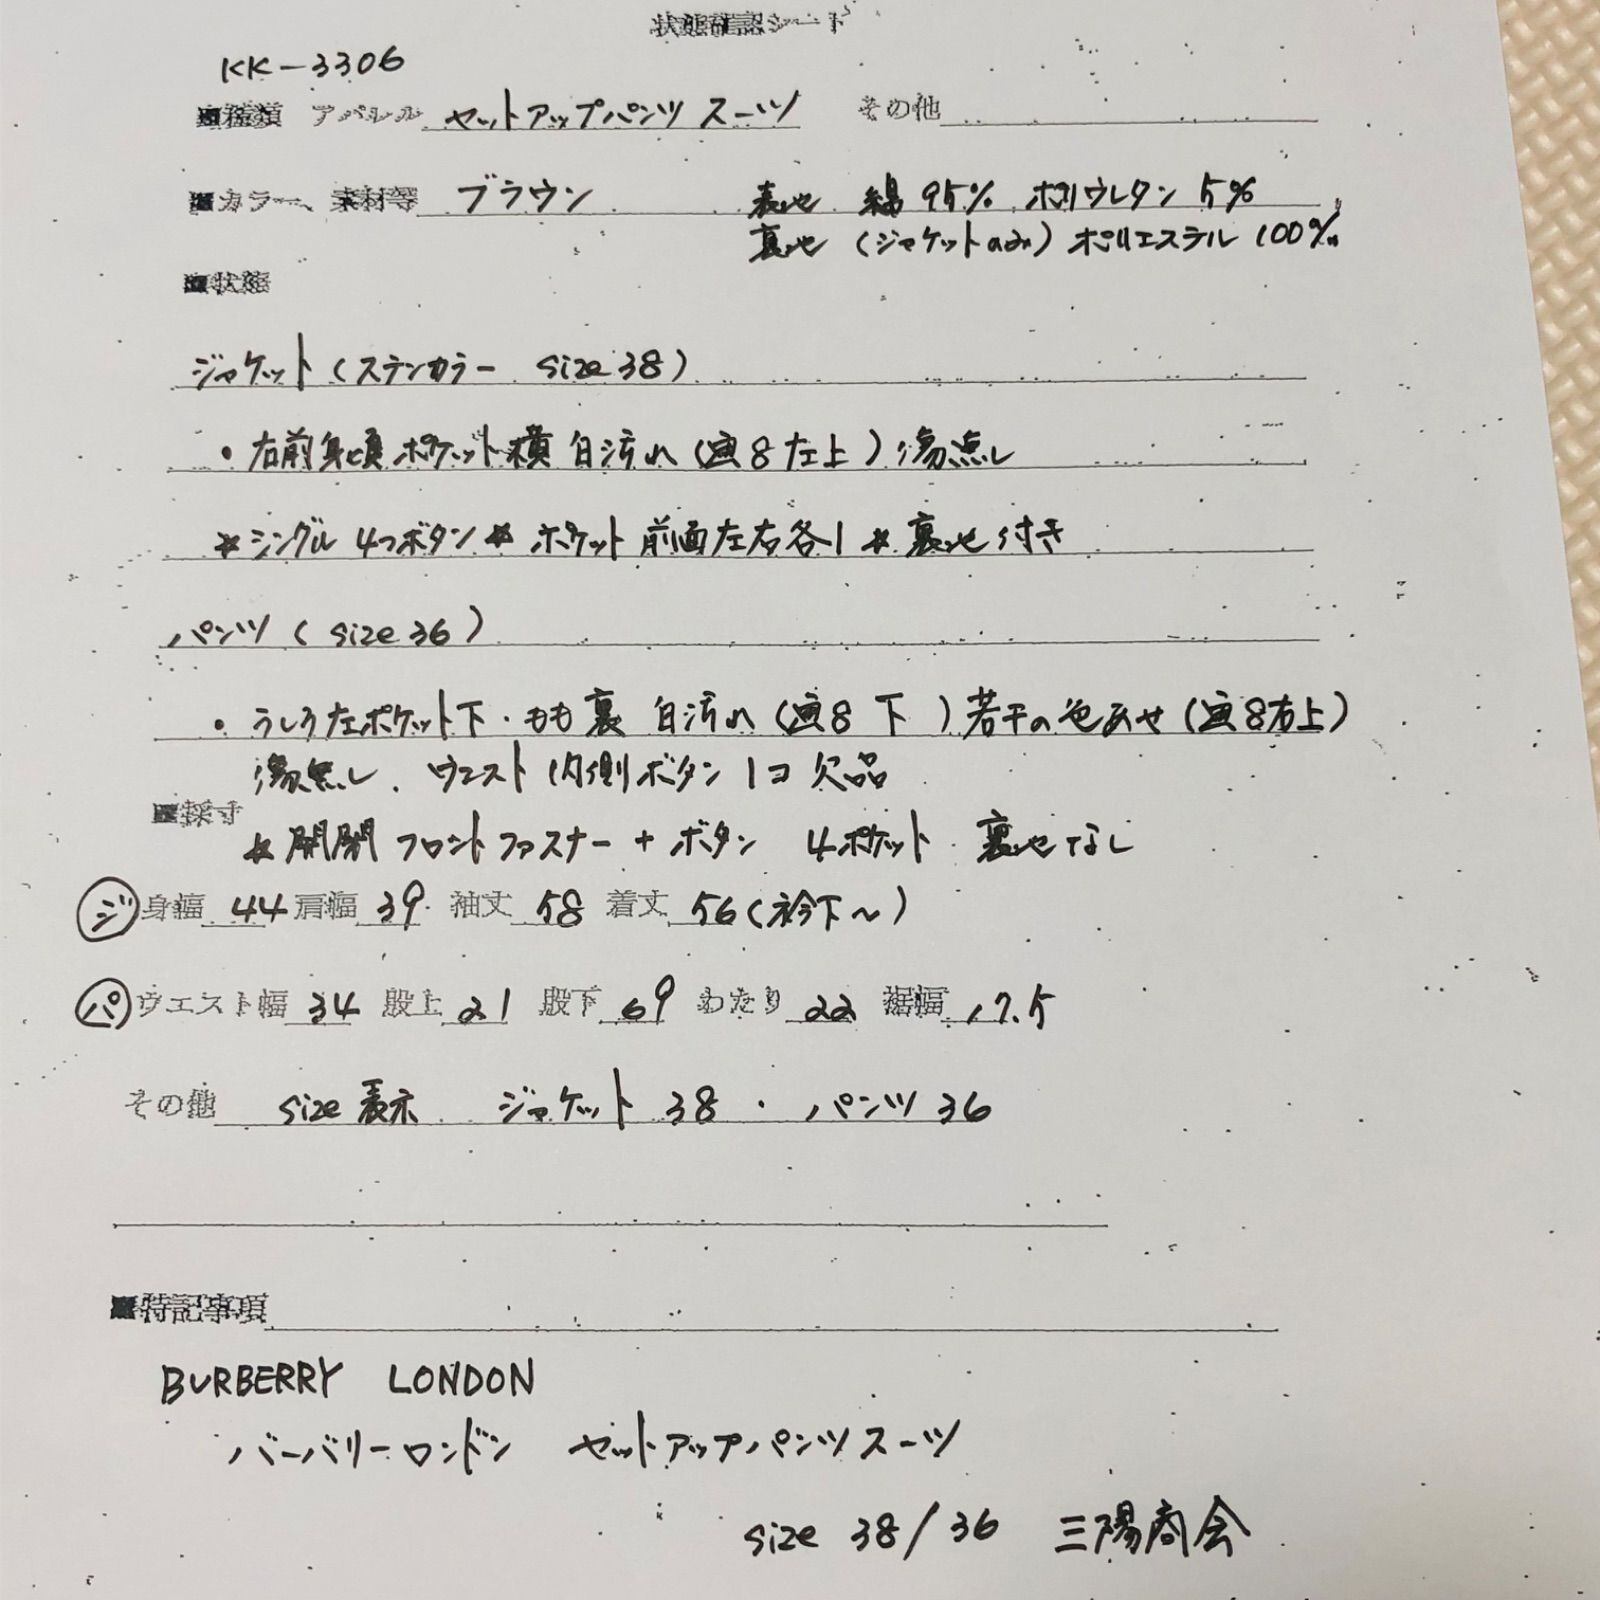 状態確認シート
KK-3306
■種類 アパレル セットアップパンツスーツ その他
■カラー、素材等 ブラウン 表地 綿95% ポリウレタン5%
裏地(ジャケットのみ)ポリエステル100%
■状態
ジャケット(ステンカラー size 38)
・右前身頃ポケット横 白汚れ(画8左上)傷無し
*シングル4つボタン*ポケット前面左右各1*裏地付き
パンツ(size 36)
・うしろ左ポケット下・もも裏 白汚れ(画8 下)若干の色あせ(画8右上)
傷無し、ウエスト内側ボタン1コ欠品
■採寸
*開閉フロントファスナー+ボタン 4ポケット 裏地なし
ジ 身幅 44 肩幅 39 袖丈 58 着丈 56(衿下~)
パ ウエスト幅 34 股上 21 股下 69 わたり 22 裾幅 17.5
その他 size表示 ジャケット38・パンツ36
■特記事項
BURBERRY LONDON
バーバリーロンドン セットアップパンツスーツ
size 38/36 三陽商会